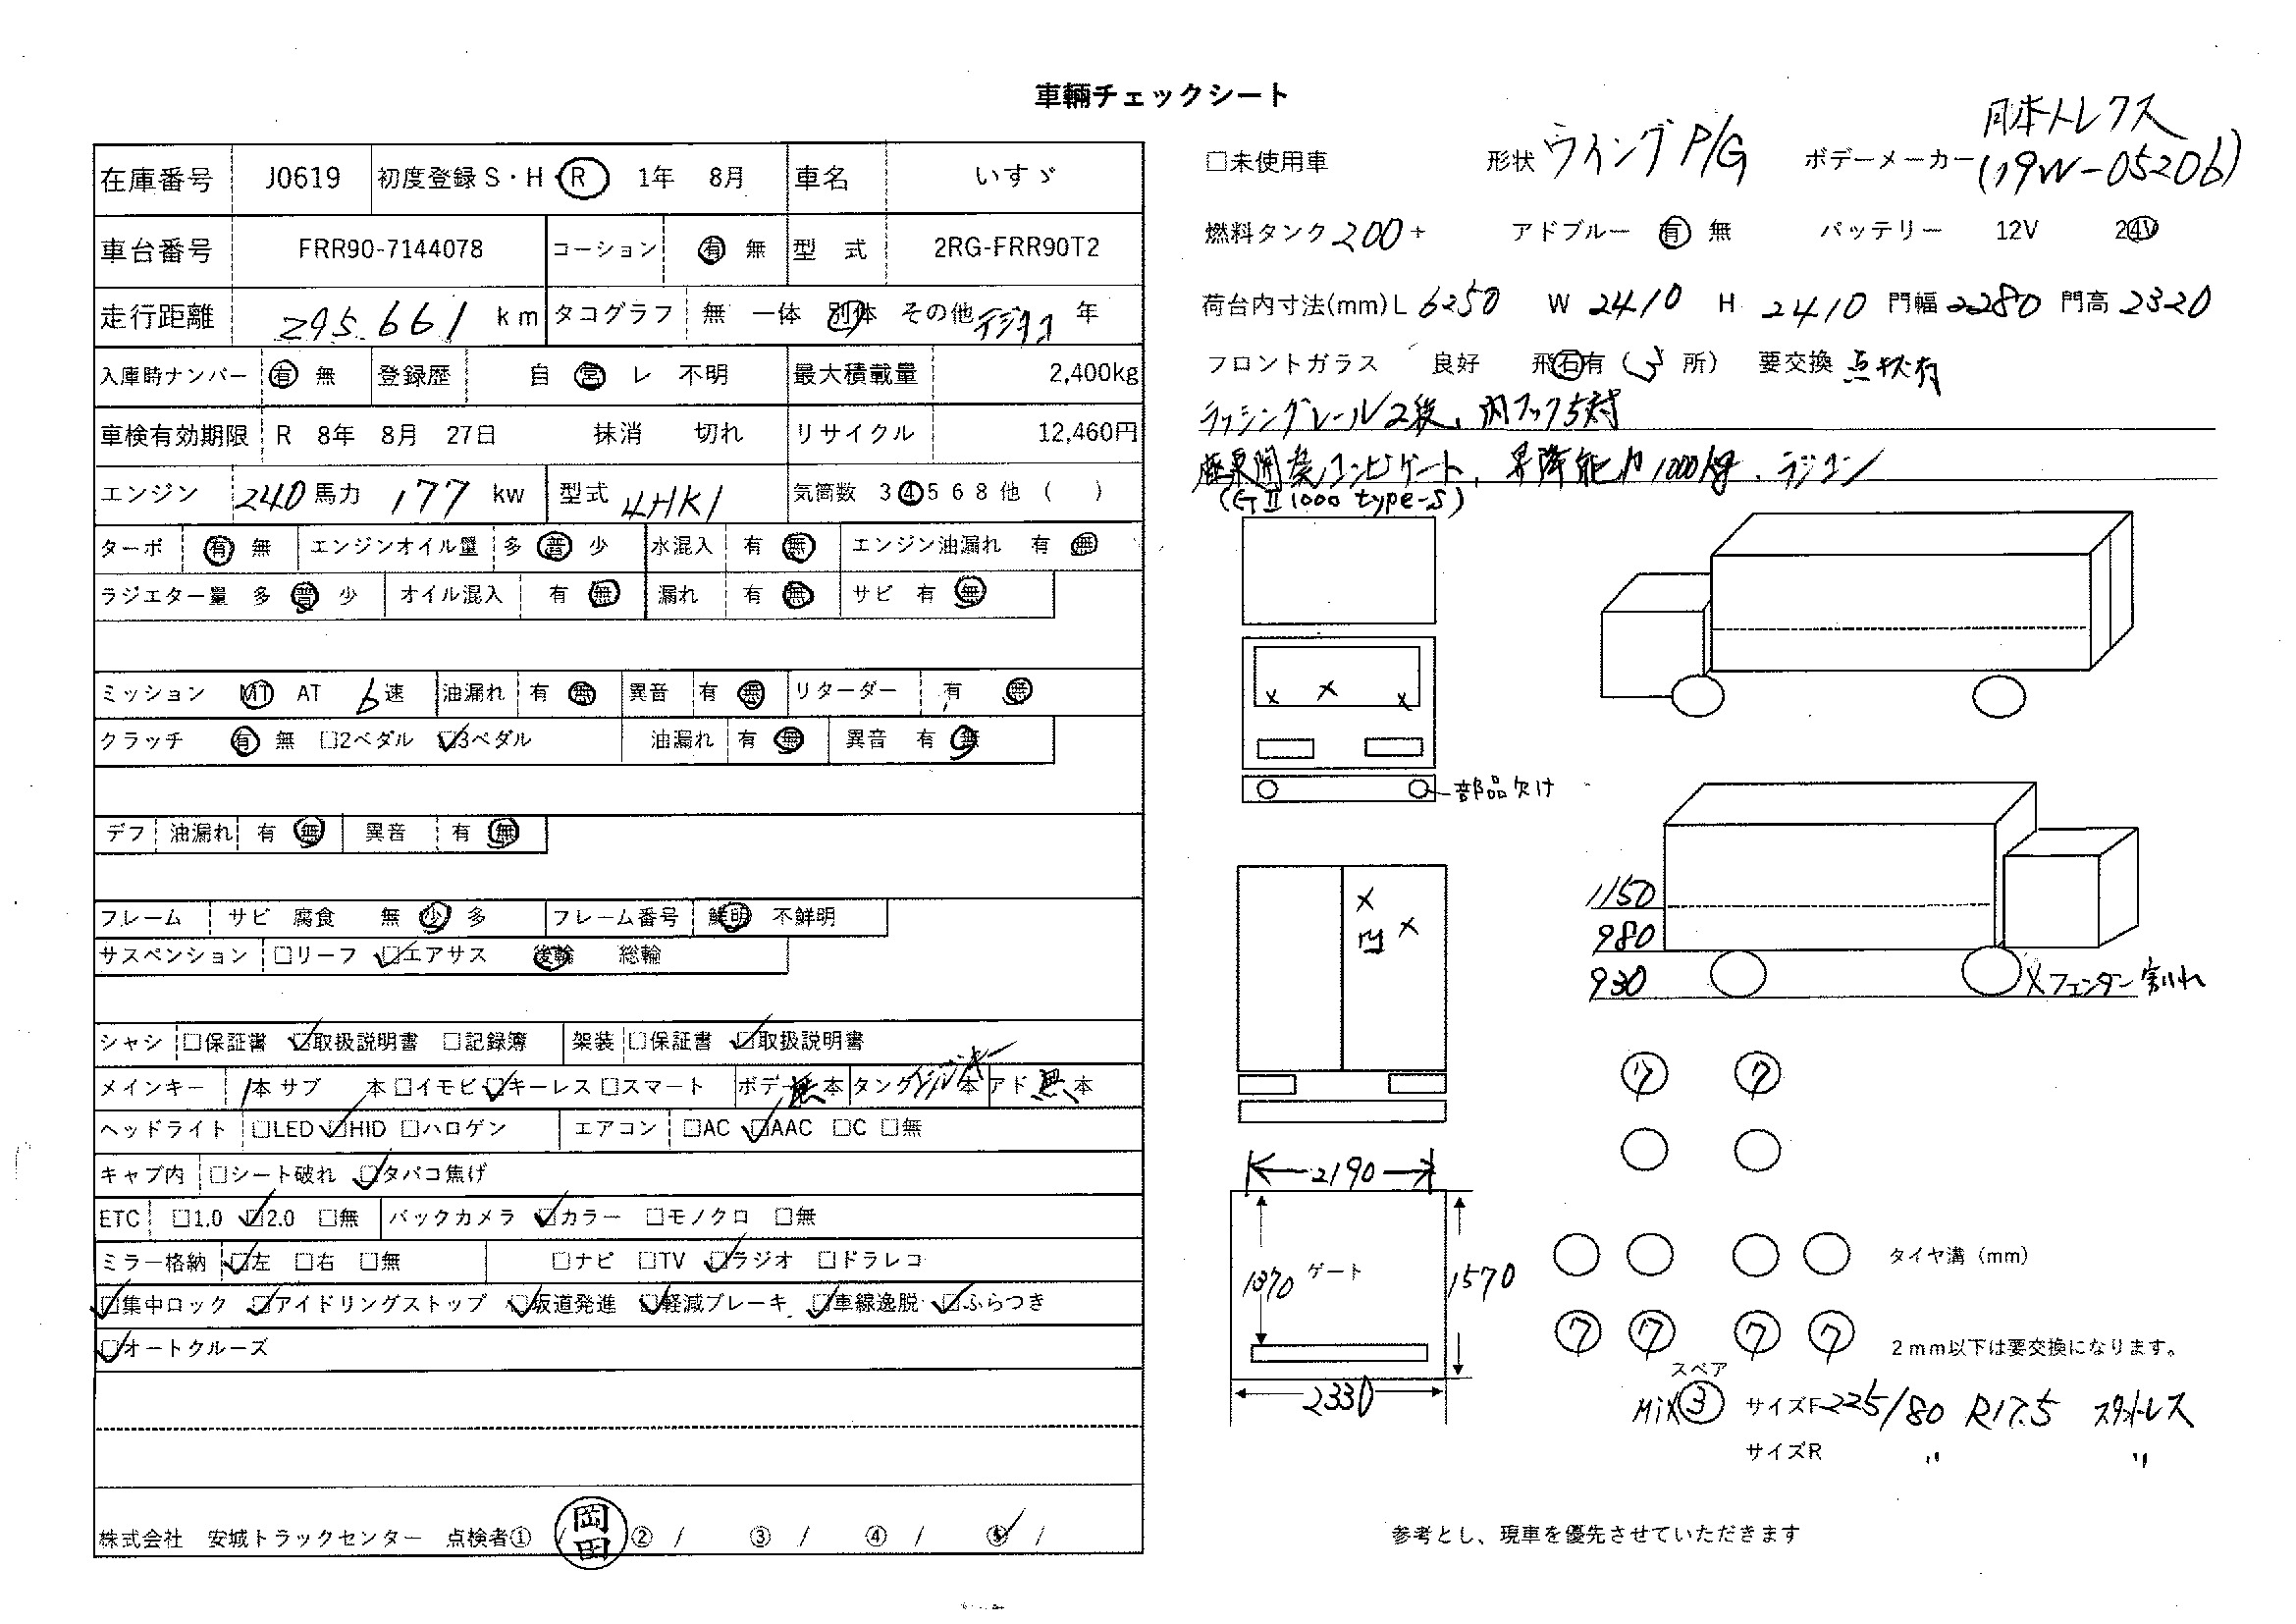 車輛チェックシート
在庫番号 J0619 初度登録 S・H・R 1年 8月 車名 いすゞ
車台番号 FRR90-7144078 コーション 有 無 型 式 2RG-FRR90T2
走行距離 295.661 km タコグラフ 無 一体 別体 その他 デジタコ 年
入庫時ナンバー 有 無 登録歴 自 営 レ 不明 最大積載量 2,400kg
車検有効期限 R 8年 8月 27日 抹消 切れ リサイクル 12,460円
エンジン 240 馬力 177 kw 型式 4HK1 気筒数 3 4 5 6 8 他 ( )
ターボ 有 無 エンジンオイル量 多 普 少 水混入 有 無 エンジン油漏れ 有 無
ラジエター量 多 普 少 オイル混入 有 無 漏れ 有 無 サビ 有 無
ミッション MT AT 6速 油漏れ 有 無 異音 有 無 リターダー 有 無
クラッチ 有 無 □2ペダル ☑3ペダル 油漏れ 有 無 異音 有 無
デフ 油漏れ 有 無 異音 有 無
フレーム サビ 腐食 無 少 多 フレーム番号 鮮明 不鮮明
サスペンション □リーフ ☑エアサス 後輪 総輪
シャシ □保証書 ☑取扱説明書 □記録簿 架装 □保証書 ☑取扱説明書
メインキー 1本 サブ 本 □イモビ ☑キーレス □スマート ボデー 無 本 タンク 本 アド 無 本
ヘッドライト □LED ☑HID □ハロゲン エアコン □AC ☑AAC □C □無
キャブ内 □シート破れ ☑タバコ焦げ
ETC □1.0 ☑2.0 □無 バックカメラ ☑カラー □モノクロ □無
ミラー格納 ☑左 □右 □無 □ナビ □TV ☑ラジオ □ドラレコ
☑集中ロック ☑アイドリングストップ ☑坂道発進 ☑軽減ブレーキ ☑車線逸脱 ☑ふらつき
☑オートクルーズ
株式会社 安城トラックセンター 点検者① / 岡田 ② / ③ / ④ / ⑤ /
□未使用車 形状 ウイング P/G ボデーメーカー 日本トレクス
(19W-05206)
燃料タンク 200+ アドブルー 有 無 バッテリー 12V 24V
荷台内寸法(mm) L 6250 W 2410 H 2410 門幅 2280 門高 2320
フロントガラス 良好 飛石有 (3 所) 要交換 点状有
ラッシングレール2段、内フック5対
極東開発パワーゲート、昇降能力1000kg、ラジコン
(GⅡ1000 type-S)
部品欠け
1150
980
930
フェンダー割れ
7 7
2190
1370 ゲート 1570
2330
タイヤ溝 (mm)
7 7 7 7
2mm以下は要交換になります。
スペア
Mix 3 サイズF 225/80 R17.5 スタットレス
サイズR 〃 〃
参考とし、現車を優先させていただきます